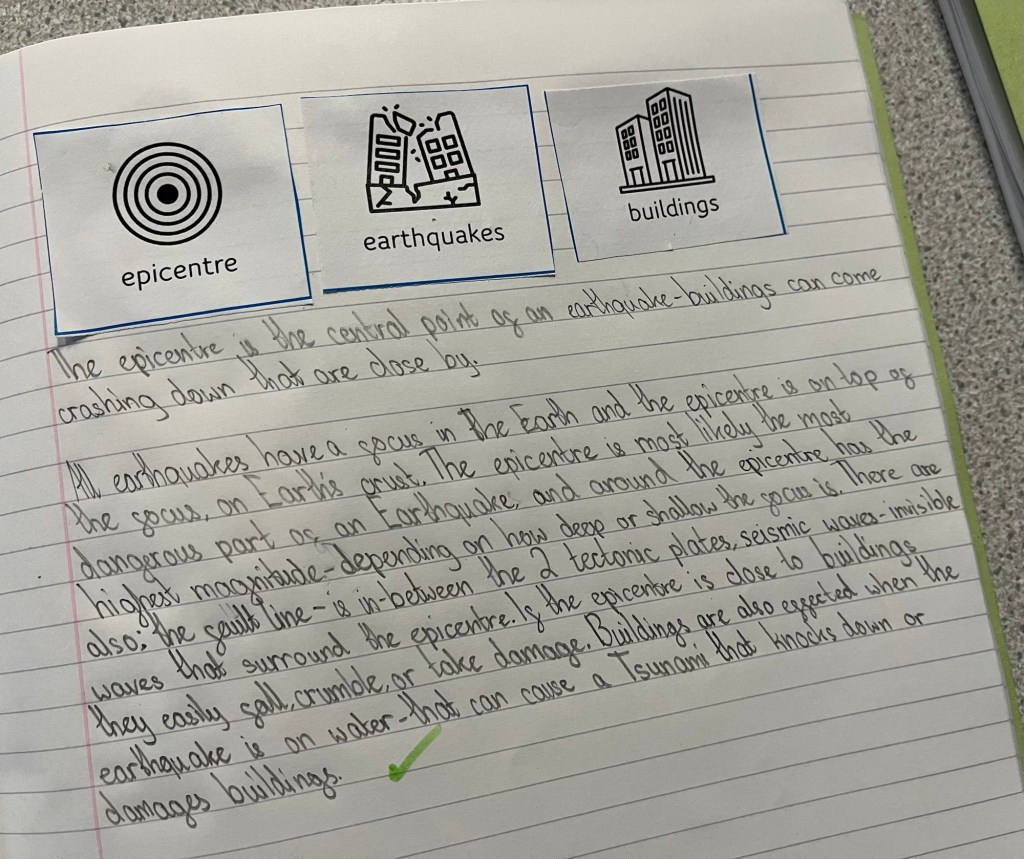 epicentre
earthquakes
buildings
The epicentre is the central point of an earthquake-buildings can come
crashing down that are close by.
All earthquakes have a focus in the Earth and the epicentre is on top of
the focus, on Earth's crust. The epicentre is most likely the most
dangerous part of an Earthquake, and around the epicentre has the
highest magnitude-depending on how deep or shallow the focus is. There are
also; the fault line-is in-between the 2 tectonic plates, seismic waves-invisible
waves that surround the epicentre. If the epicentre is close to buildings
they easily fall, crumble, or take damage. Buildings are also effected when the
earthquake is on water-that can cause a Tsunami that knocks down or
damages buildings.